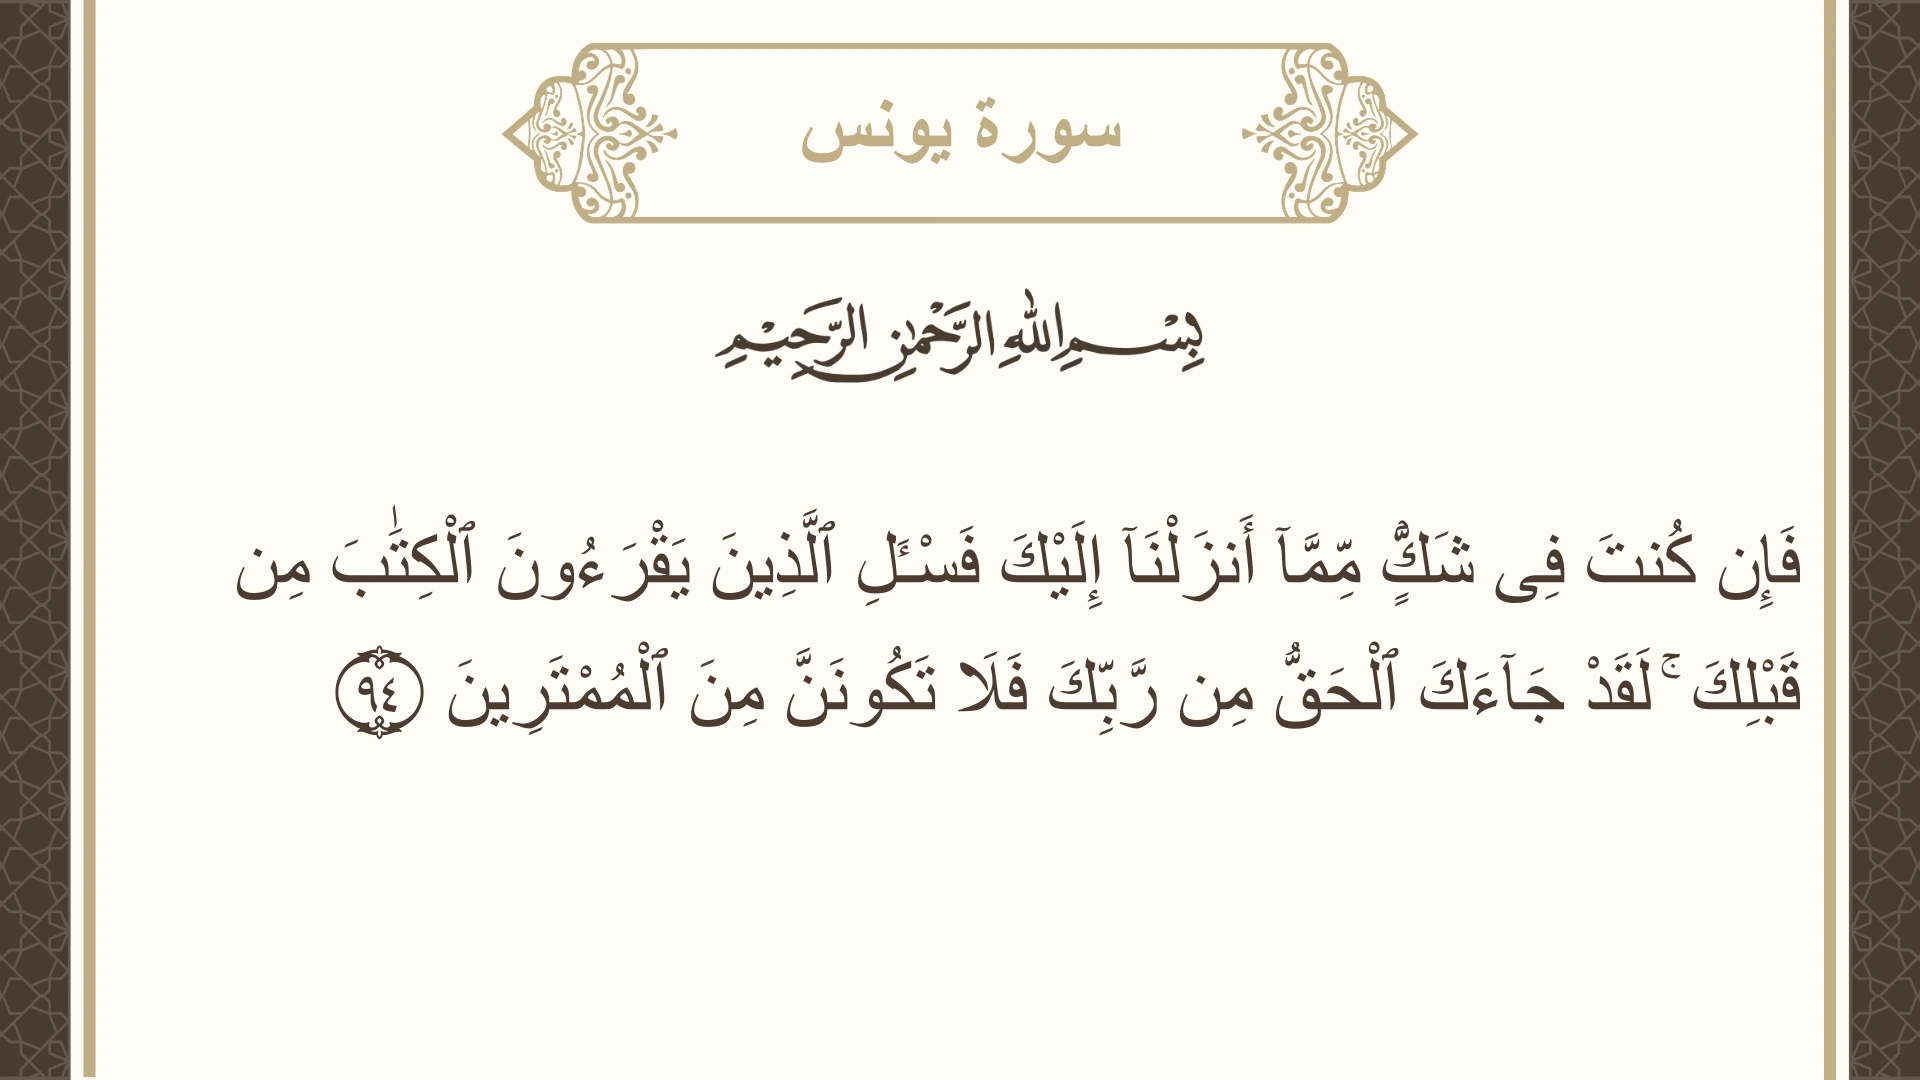 سورة يونس
بِسْمِ اللهِ الرَّحْمٰنِ الرَّحِيْمِ
فَإِن كُنتَ فِى شَكٍّۢ مِّمَّآ أَنزَلْنَآ إِلَيْكَ فَسْـَٔلِ ٱلَّذِينَ يَقْرَءُونَ ٱلْكِتَـٰبَ مِن
قَبْلِكَ ۚ لَقَدْ جَآءَكَ ٱلْحَقُّ مِن رَّبِّكَ فَلَا تَكُونَنَّ مِنَ ٱلْمُمْتَرِينَ ٩٤